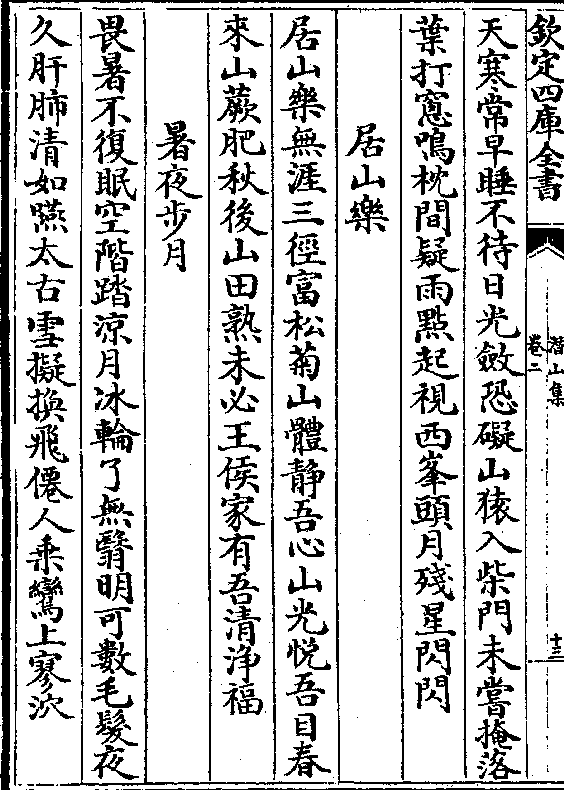 欽定四庫全書
潛山集
卷二
十三
天寒常早睡不待日光斂恐礙山猿入柴門未嘗掩落
葉打窻鳴枕間疑雨點起視西峯頭月殘星閃閃
居山樂
居山樂無涯三徑富松菊山體靜吾心山光悅吾目春
來山蕨肥秋後山田熟未必王侯家有吾清淨福
暑夜步月
畏暑不復眠空階踏涼月冰輪了無翳明可數毛髮夜
久肝肺清如嚥太古雪擬換飛僊人乘鸞上寥泬